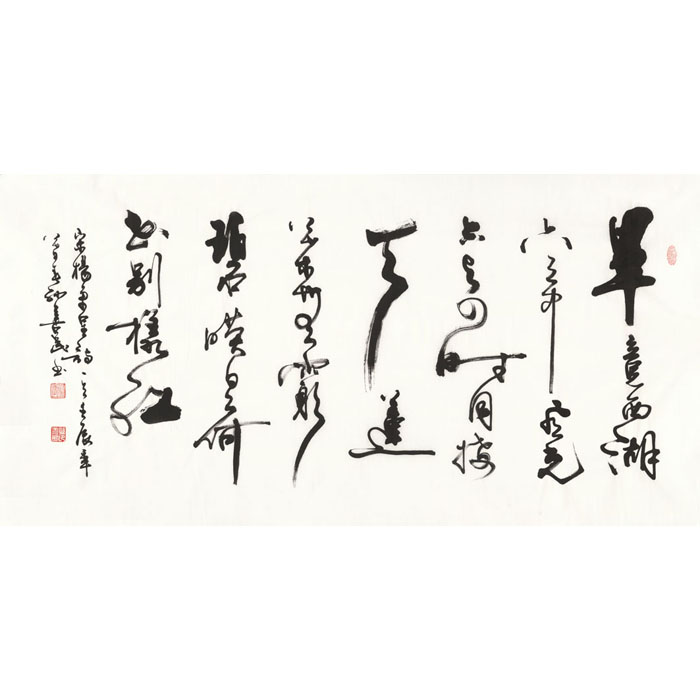 畢竟西湖
六月中風光
不與四時同接
天蓮
葉無窮
碧暎日荷
花別樣紅
宋楊萬里詩一首壬辰年